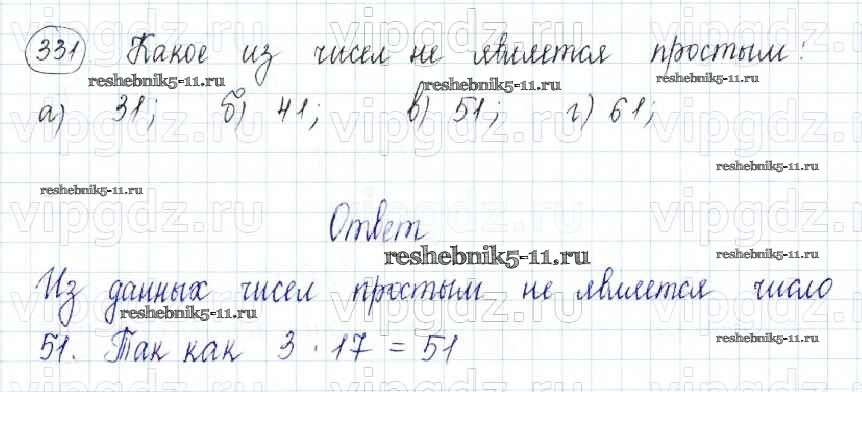 331 Какое из чисел не является простым:
а) 31; б) 41; в) 51; г) 61;
Ответ
Из данных чисел простым не является число
51. Так как 3 · 17 = 51
vipgdz.ru vipgdz.ru vipgdz.ru
reshebnik5-11.ru reshebnik5-11.ru reshebnik5-11.ru
vipgdz.ru vipgdz.ru vipgdz.ru
reshebnik5-11.ru reshebnik5-11.ru
vipgdz.ru vipgdz.ru vipgdz.ru
reshebnik5-11.ru reshebnik5-11.ru
vipgdz.ru vipgdz.ru vipgdz.ru
reshebnik5-11.ru reshebnik5-11.ru
vipgdz.ru vipgdz.ru vipgdz.ru